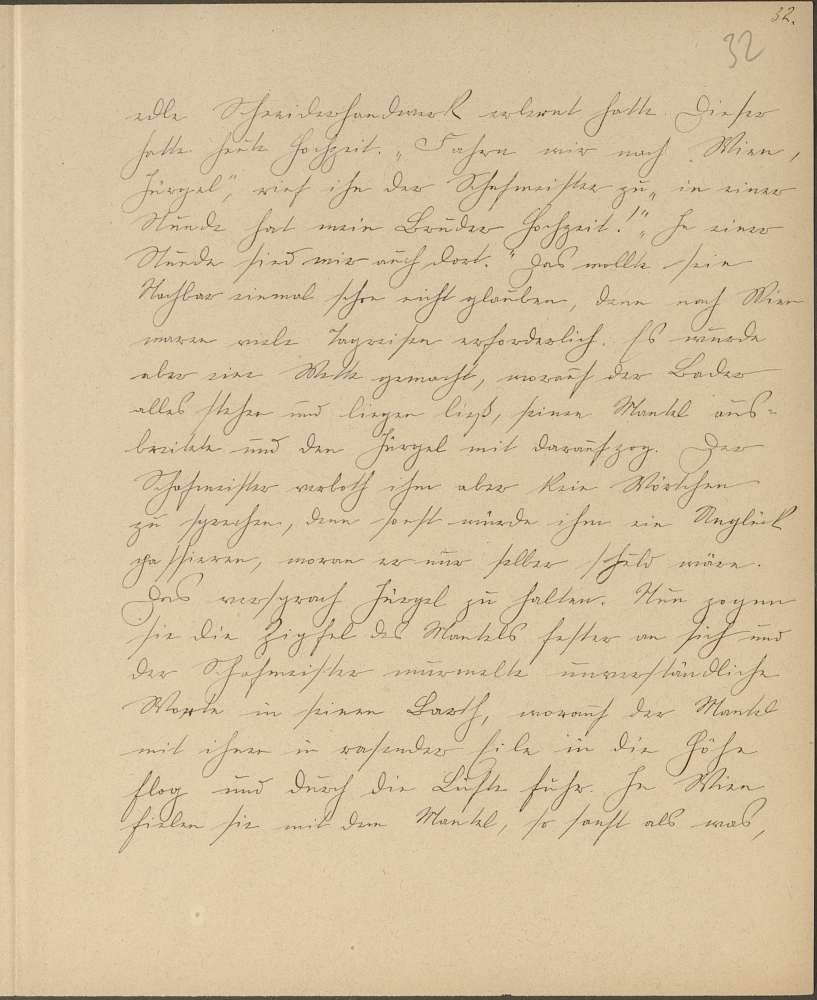 32.
32
edle Schneiderhandwerk erlernt hatte. Dieser
hatte heute Hochzeit. „Fahren wir nach Wien,
Jürgel", rief ihm der Schafmeister zu „in einer
Stunde hat mein Bruder Hochzeit!" „In einer
Stunde sind wir auch dort." Das wollte sein
Nachbar einmal schon nicht glauben, denn nach Wien
waren viele Tagreisen erforderlich. Es wurde
aber eine Wette gemacht, worauf der Bader
alles stehen und liegen ließ, seinen Mantel aus-
breitete und den Jürgel mit darauf zog. Der
Schafmeister verboth ihm aber kein Wörtchen
zu sprechen, denn sonst würde ihm ein Unglück
passieren, woran er nur selber schuld wäre.
Das versprach Jürgel zu halten. Nun zogen
sie die Zipfel des Mantels fester an sich und
der Schafmeister murmelte unverständliche
Worte in seinen Barth, worauf der Mantel
mit ihnen in rasender Eile in die Höhe
flog und durch die Lüfte fuhr. In Wien
fielen sie mit dem Mantel, so sanft als was,